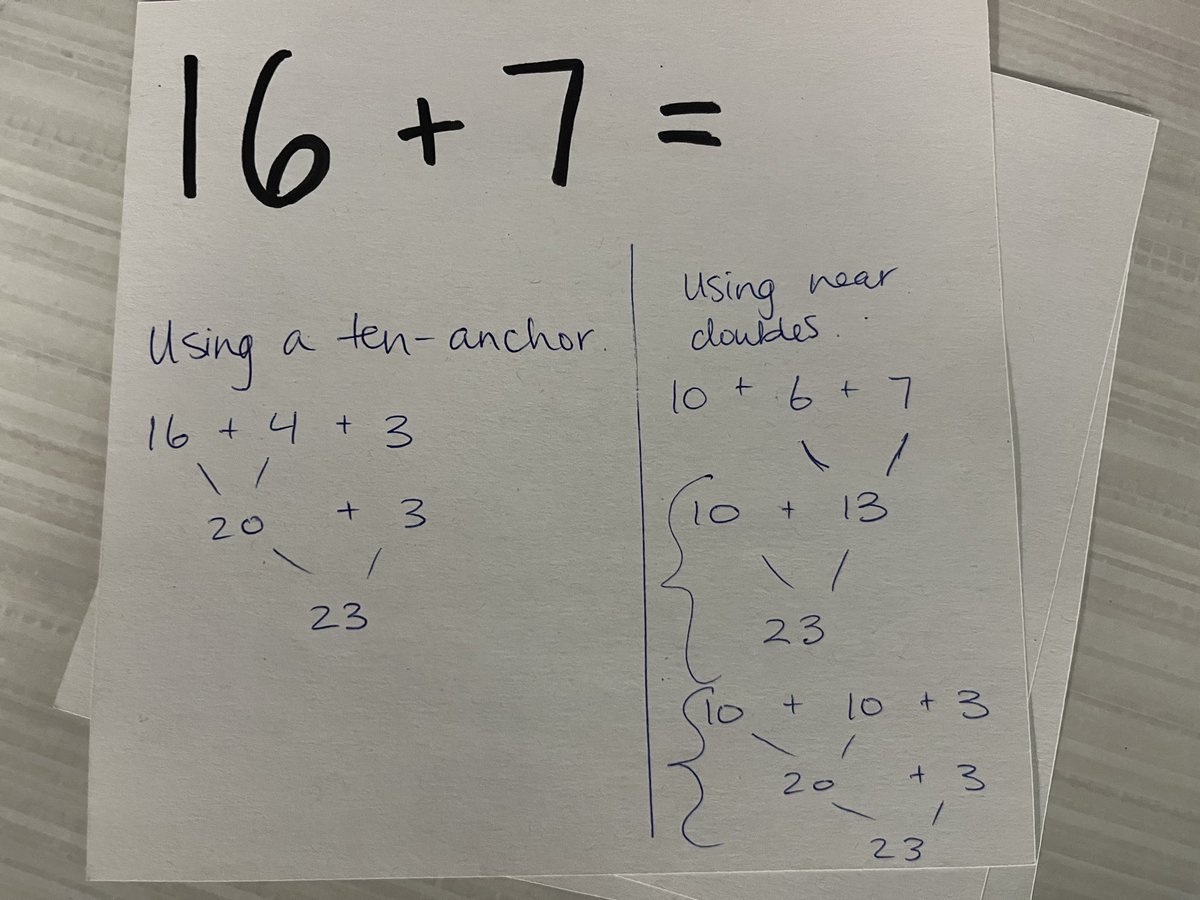 16 + 7 =
Using a ten-anchor.
16 + 4 + 3
20 + 3
23
Using near
doubles.
10 + 6 + 7
10 + 13
23
10 + 10 + 3
20 + 3
23